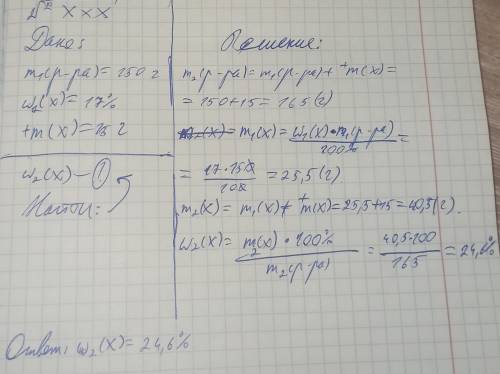 № XXX
Дано: Решение:
m₁(р-ра) = 150 г
ω₂(X) = 17%
+m(X) = 15 г
ω₂(X) – ?
Найти:
m₂(р-ра) = m₁(р-ра) + +m(X) =
= 150 + 15 = 165 (г)
m₁(X) = ω₁(X) · m₁(р-ра) / 100% =
= 17 · 150 / 100 = 25,5 (г).
m₂(X) = m₁(X) + +m(X) = 25,5 + 15 = 40,5 (г).
ω₂(X) = m₂(X) · 100% / m₂(р-ра) = 40,5 · 100 / 165 = 24,6%
Ответ: ω₂(X) = 24,6%.